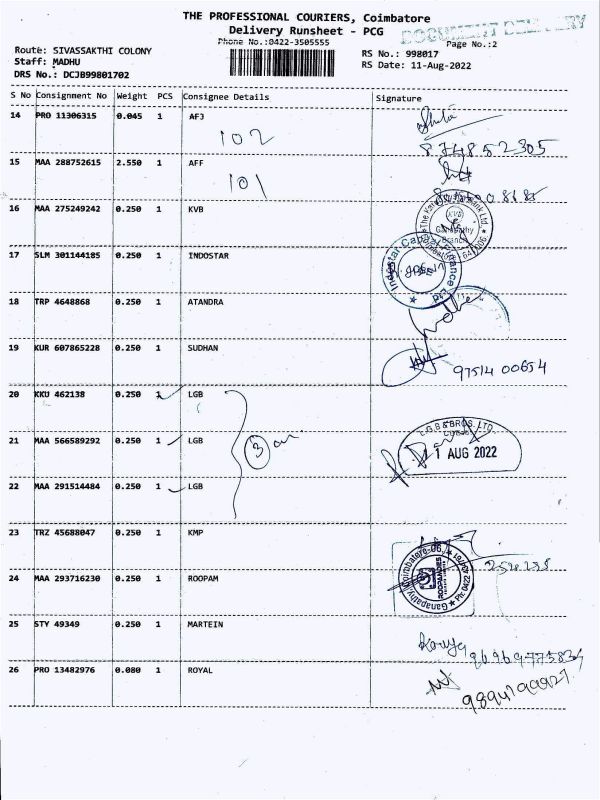 THE PROFESSIONAL COURIERS, Coimbatore
Delivery Runsheet - PCG
DOCUMENT DELIVERY
Phone No.:0422-3505555
Page No.:2
Route: SIVASSAKTHI COLONY
RS No.: 998017
Staff: MADHU
RS Date: 11-Aug-2022
DRS No.: DCJB99801702
S No Consignment No Weight PCS Consignee Details Signature
14 PRO 11306315 0.045 1 AFJ
102
874852305
15 MAA 288752615 2.550 1 AFF
101
16 MAA 275249242 0.250 1 KVB
KVB
Ganapathy
Branch
17 SLM 301144185 0.250 1 INDOSTAR
Indostar Capital Finance
18 TRP 4648868 0.250 1 ATANDRA
19 KUR 607865228 0.250 1 SUDHAN
97514 00654
20 KKU 462138 0.250 1 LGB
L.G.B & BROS. LTD.
21 MAA 566589292 0.250 1 LGB
3
1 AUG 2022
22 MAA 291514484 0.250 1 LGB
23 TRZ 45688047 0.250 1 KMP
24 MAA 293716230 0.250 1 ROOPAM
Ganapathy Coimbatore-06
Ph: 0422
25 STY 49349 0.250 1 MARTEIN
26 PRO 13482976 0.080 1 ROYAL